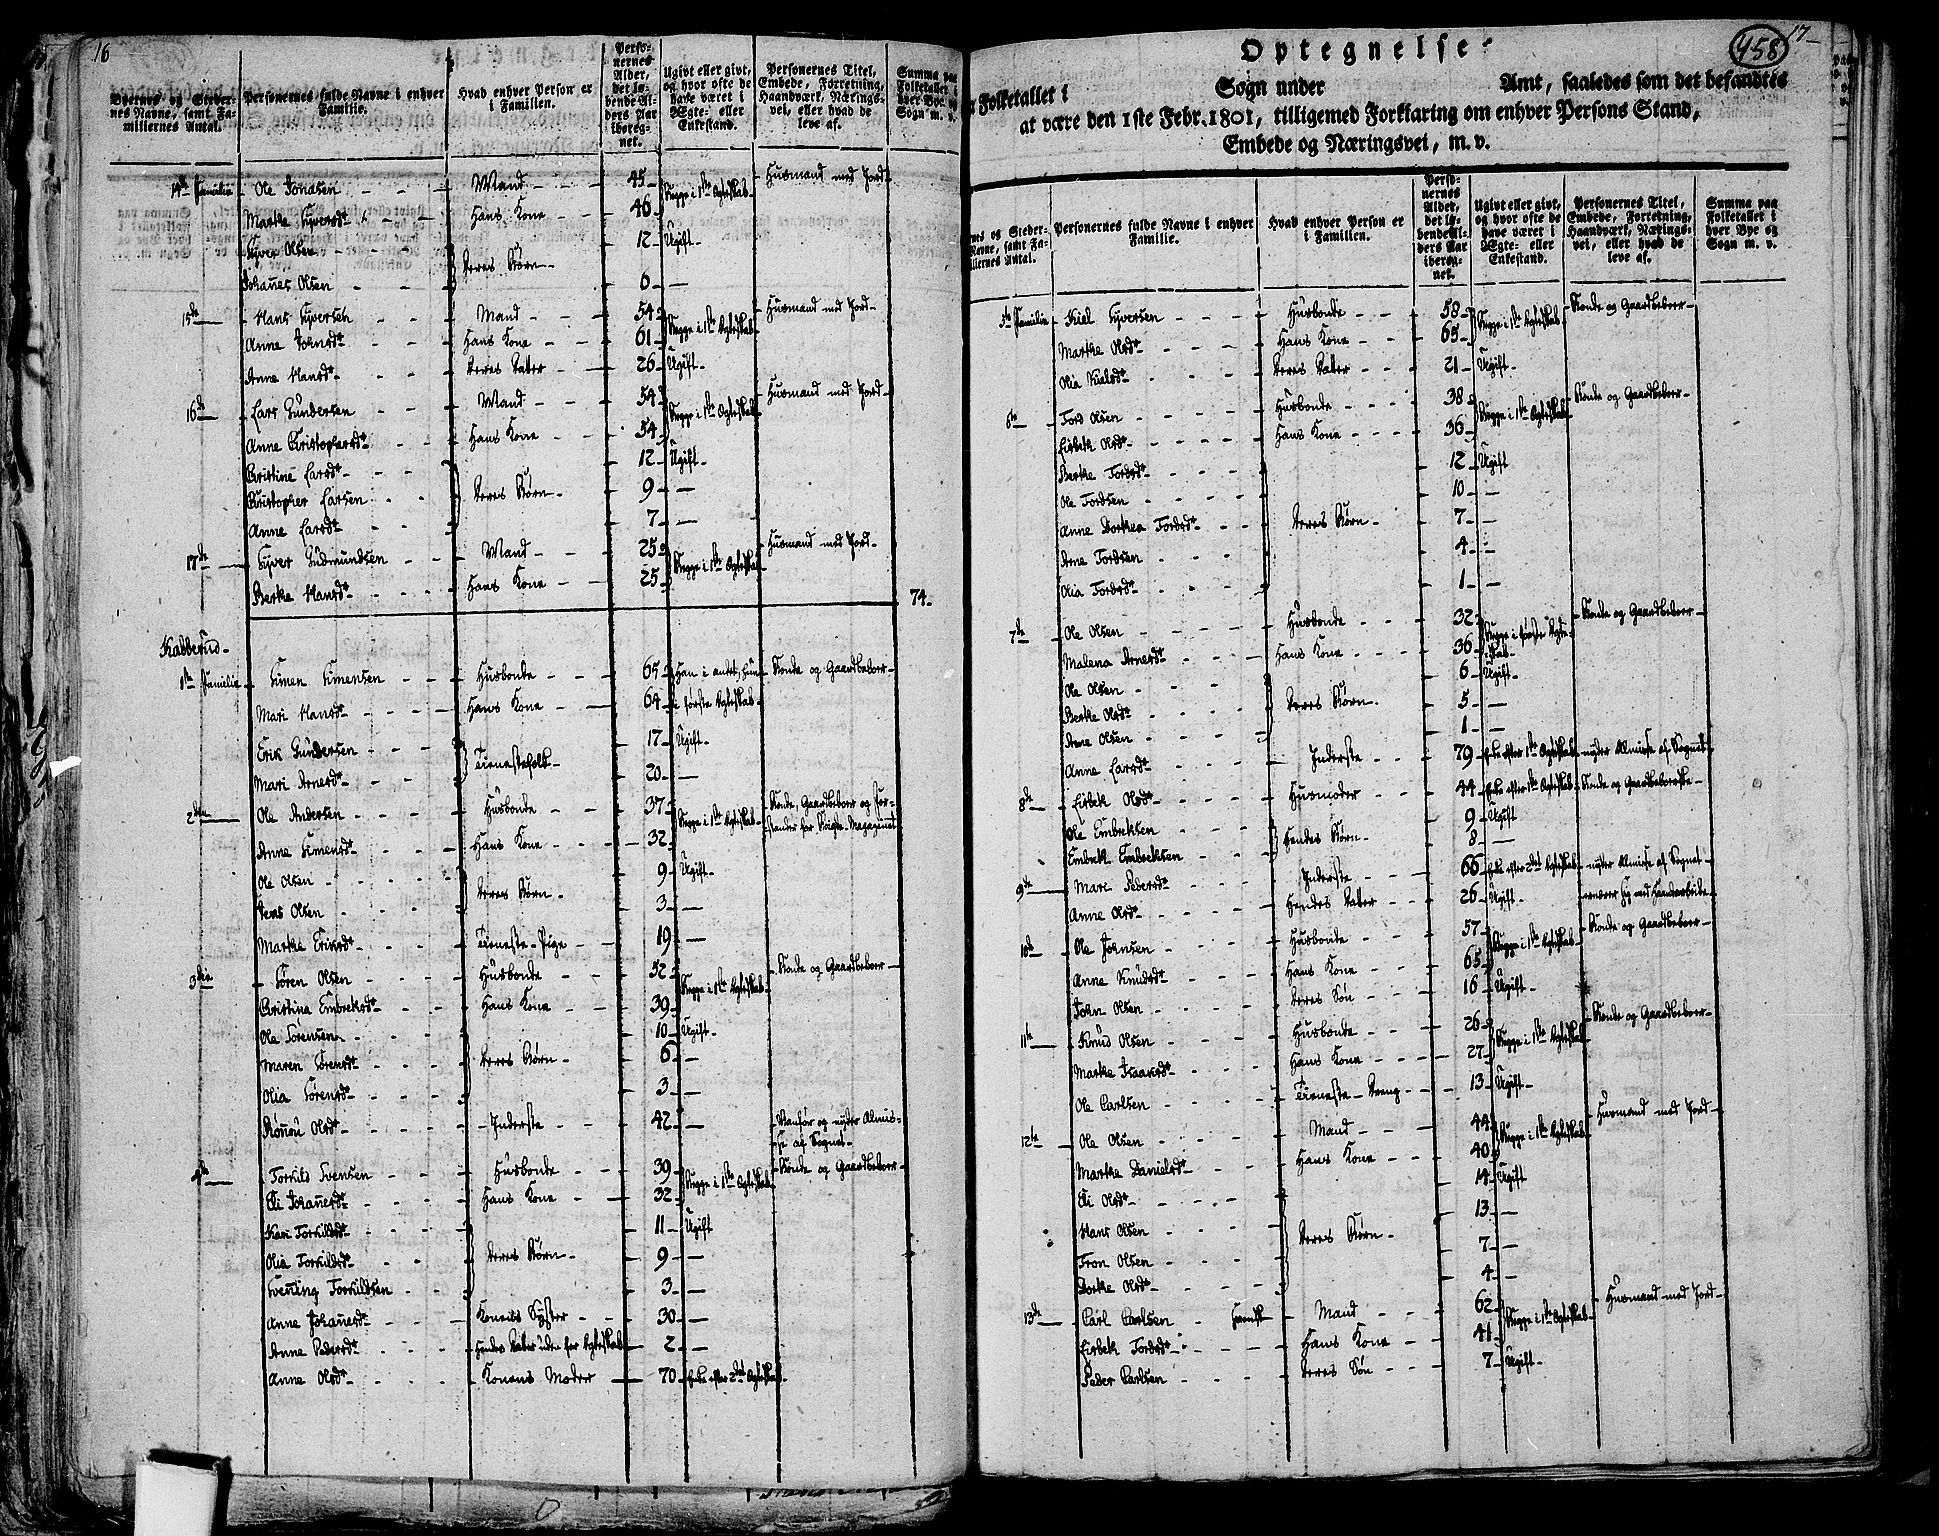 16
Byernes og Steder-
nes Navne, samt Fa-
miliernes Antal.
Personernes fulde Navne i enhver
Familie.
Hvad enhver Person er
i Familien.
Perso-
nernes
Alder,
det lø-
bende Al-
ders Aar
iberegnet.
Ugivt eller givt,
og hvor ofte de
have været i
Ægte- eller
Enkestand.
Personernes Titel,
Embede, Forretning,
Haandværk, Nærings-
vei, eller hvad de
leve af.
Summa paa
Folketallet i
hver Bye og
Sogn m. v.
14de Familie Ole Jonasen Mand 45 Begge i 1ste Ægteskab Huusmand med Jord
Marthe Syversdt Hans Kone 46
Syver Olsen Deres Børn 12 Ugift
Johannes Olsen 6 —
15de Hans Syversen Mand 54 Begge i 1ste Ægteskab Huusmand med Jord
Anne Johnsdt Hans Kone 61
Anne Hansdt Deres Datter 26 Ugift
16de Lars Gundersen Mand 54 Begge i 1ste Ægteskab Huusmand med Jord
Anne Christophersdt Hans Kone 54
Christine Larsdt Deres Børn 12 Ugift
Christopher Larsen 9 —
Anne Larsdt 7 —
17de Syver Gudmundsen Mand 25 Begge i 1ste Ægteskab Huusmand med Jord
Berthe Hansdt Hans Kone 25
74
Kabberud
1ste Familie Simen Simensen Husbonde 65 Han i andet, hun Bonde og Gaardbeboer
Mari Hansdt Hans Kone 64 i første Ægteskab
Erik Gundersen Tienestefolk 17 Ugift
Mari Arnesdt 20 —
2den Ole Andersen Husbonde 37 Begge i 1ste Ægteskab Bonde, Gaardbeboer og For-
stander for Bøigde-Magazinet
Anne Simensdt Hans Kone 32
Ole Olsen Deres Børn 9 Ugift
Jens Olsen 3 —
Marthe Eriksdt Tieneste-Pige 19 —
3die Søren Olsen Husbonde 52 Begge i 1ste Ægteskab Bonde og Gaardbeboer
Christina Embreksdt Hans Kone 39
Ole Sørensen Deres Børn 10 Ugift
Maren Sørensdt 6 —
Olia Sørensdt 3 —
Rønnou Olsdt Inderste 42 — Vanfør og nyder Almis-
se af Sognet
4de Torkils Svensen Husbonde 39 Begge i 1ste Ægteskab Bonde og Gaardbeboer
Eli Johanesdt Hans Kone 32
Kari Torkildsdt Deres Børn 11 Ugift
Olia Torkildsdt 9 —
Svenning Torkildsen 3 —
Anne Johanesdt Konens Syster 30 —
Anne Pedersdt Hendes Datter uden for Ægteskab 2 —
Anne Olsdt Konens Moder 70 Enke efter 2det Ægteskab
458
17
Optegnelse
Folketallet i Sogn under Amt, saaledes som det befandtes
at være den 1ste Febr. 1801, tilligemed Forklaring om enhver Persons Stand,
Embede og Næringsvei, m. v.
nes og Steder-
Navne, samt Fa-
liernes Antal.
Personernes fulde Navne i enhver
Familie.
Hvad enhver Person er
i Familien.
Perso-
nernes
Alder,
det lø-
bende Al-
ders Aar
ibereg-
net.
Ugivt eller givt,
og hvor ofte de
have været i
Ægte- eller
Enkestand.
Personernes Titel,
Embede, Forretning,
Haandværk, Nærings-
vei, eller hvad de
leve af.
Summa paa
Folketallet i
hver Bye og
Sogn m. v.
5te Familie Kiel Syversen Husbonde 58 Begge i 1ste Ægteskab Bonde og Gaardbeboer
Marthe Olsdt Hans Kone 65
Olia Kielsdt Deres Datter 21 Ugift
6te Tord Olsen Husbonde 38 Begge i 1ste Ægteskab Bonde og Gaardbeboer
Lisbek Olsdt Hans Kone 36
Berthe Tordsdt Deres Børn 12 Ugift
Ole Tordsen 10 —
Anne Dorthea Tordsdt 7 —
Arne Tordsen 4 —
Olia Tordsdt 1 —
7de Ole Olsen Husbonde 32 Begge i første Ægte- Bonde og Gaardbeboer
Malena Arnesdt Hans Kone 36 skab
Ole Olsen Deres Børn 6 Ugift
Berthe Olsdt 5 —
Arne Olsen 1 —
Anne Larsdt Inderste 79 Enke efter 1ste Ægteskab nyder Almisse af Sognet
8de Lisbek Olsdt Husmoder 44 Enke efter 1ste Ægteskab Bonde og Gaardbeboerske
Ole Embreksen Hendes Børn 9 Ugift
Embrek Embreksen 8 —
9de Mari Pedersdt Inderste 66 Enke efter 2det Ægteskab nyder Almisse af Sognet
Anne Olsdt Hendes Datter 26 Ugift ernærer sig med Haandarbeide
10de Ole Johnsen Husbonde 57 Begge i 1ste Ægteskab Bonde og Gaardbeboer
Anne Knudsdt Hans Kone 65
John Olsen Deres Søn 16 Ugift
11te Knud Olsen Husbonde 26 Begge i 1ste Ægteskab Bonde og Gaardbeboer
Marthe Isaacsdt Hans Kone 27
Ole Carlsen Tieneste-Dreng 13 Ugift
12te Ole Olsen Mand 44 Begge i 1ste Ægteskab Huusmand med Jord
Marthe Danielsdt Hans Kone 40
Eli Olsdt Deres Børn 14 Ugift
Hans Olsen 13 —
Tron Olsen 7 —
Dorthe Olsdt 4 —
13de Carl Carlsen Svensk Mand 62 Begge i 1ste Ægteskab Huusmand med Jord
Lisbek Tordsdt Hans Kone 41
Peder Carlsen Deres Søn 7 Ugift